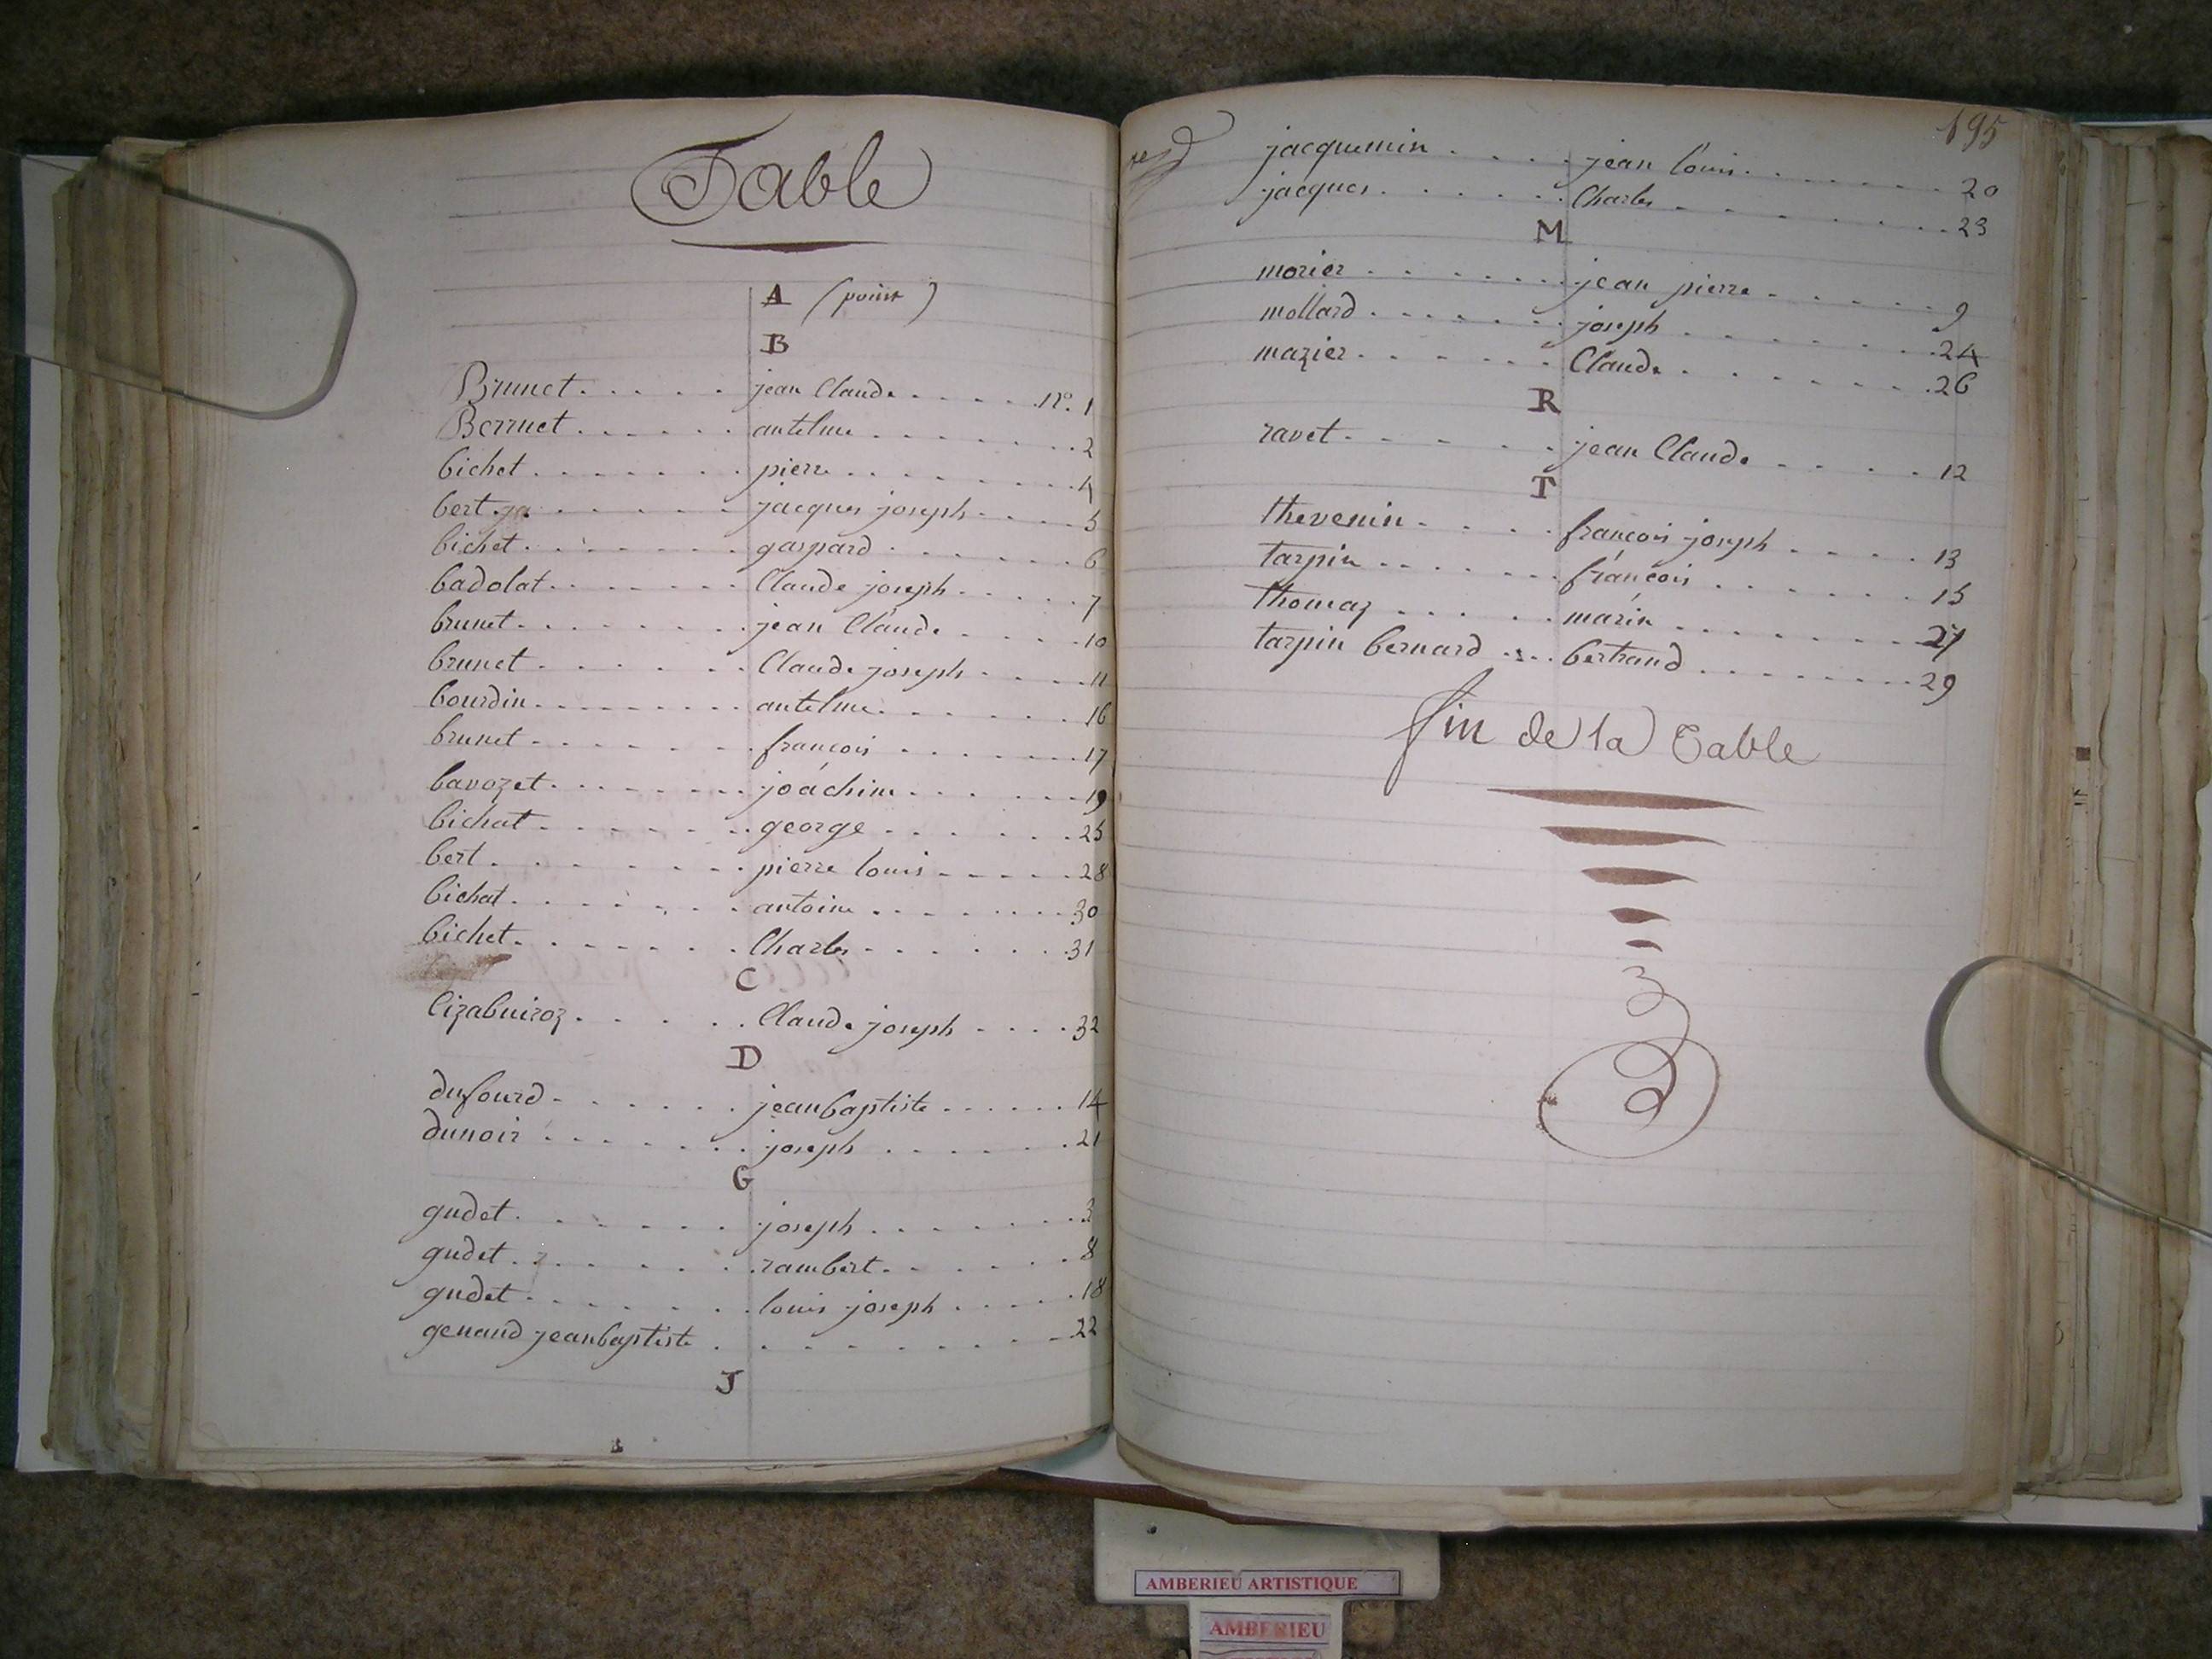 Table
A (point)
B
Brunet . . . . . jean Claude . . . . . N.º 1
Berruet . . . . . . antelme . . . . . . . 2
bichet . . . . . . . pierre . . . . . . . 4
bert . . . . . . jacques joseph . . . . 5
bichet . . . . . . . gaspard . . . . . . 6
badolat . . . . . . . Claude joseph . . . . . 7
brunet . . . . . . . jean Claude . . . . . 10
brunet . . . . . . Claude joseph . . . . 11
bourdin . . . . . . . . antelme . . . . . . 16
brunet . . . . . . . françois . . . . . . 17
bavozet . . . . . . . joachim . . . . . . 19
bichat . . . . . . . george . . . . . . 25
bert . . . . . . . pierre louis . . . . . 28
bichat . . . . . . . antoine . . . . . . . 30
bichet . . . . . . . Charles . . . . . . 31
C
Claude joseph . . . . 32
D
dufourd . . . . . . jeanbaptiste . . . . . . 14
dunoir . . . . . . . joseph . . . . . . 21
G
gudet . . . . . . joseph . . . . . . 3
gudet . . . . . . . rambert . . . . . . 8
gudet . . . . . . . louis joseph . . . . . 18
genand jeanbaptiste . . . . . . . . . 22
J
195
jacquemin . . . . jean louis . . . . . . . 20
jacques . . . . . . Charles . . . . . . . 23
M
morier . . . . . . jean pierre . . . . . . 9
mollard . . . . . . . joseph . . . . . . . 24
mazier . . . . . . Claude . . . . . . . 26
R
ravet . . . . . . jean Claude . . . . . 12
T
thevenin . . . . françois joseph . . . . . 13
tarpin . . . . . . . françois . . . . . . . 15
thomaz . . . . . marin . . . . . . . . 27
tarpin bernard . . . . bertrand . . . . . . . . 29
fin de la Table
AMBERIEU ARTISTIQUE
AMBERIEU